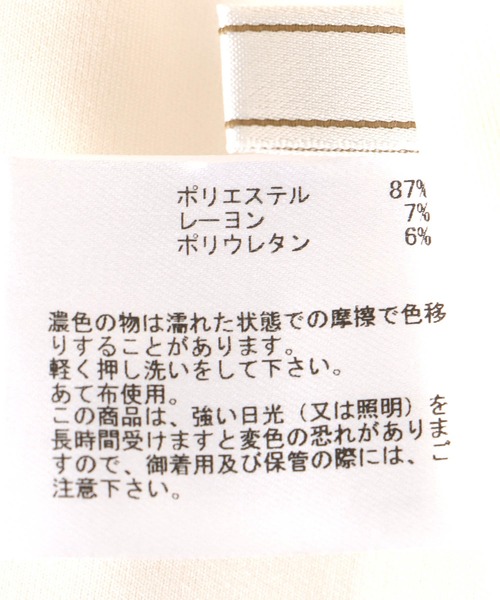 ポリエステル 87%
レーヨン 7%
ポリウレタン 6%
濃色の物は濡れた状態での摩擦で色移
りすることがあります。
軽く押し洗いをして下さい。
あて布使用。
この商品は、強い日光（又は照明）を
長時間受けますと変色の恐れがありま
すので、御着用及び保管の際には、ご
注意下さい。